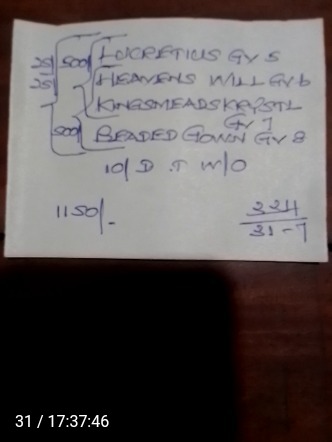 25/ 500 LUCRETIUS GV 5
25/ HEAVENS WILL GV 6
KINGSMEADS KRYSTL
GV 7
500 BEADED GOWN GV 8
10/ D.T W/O
1150/-
224
31-7
31 / 17:37:46